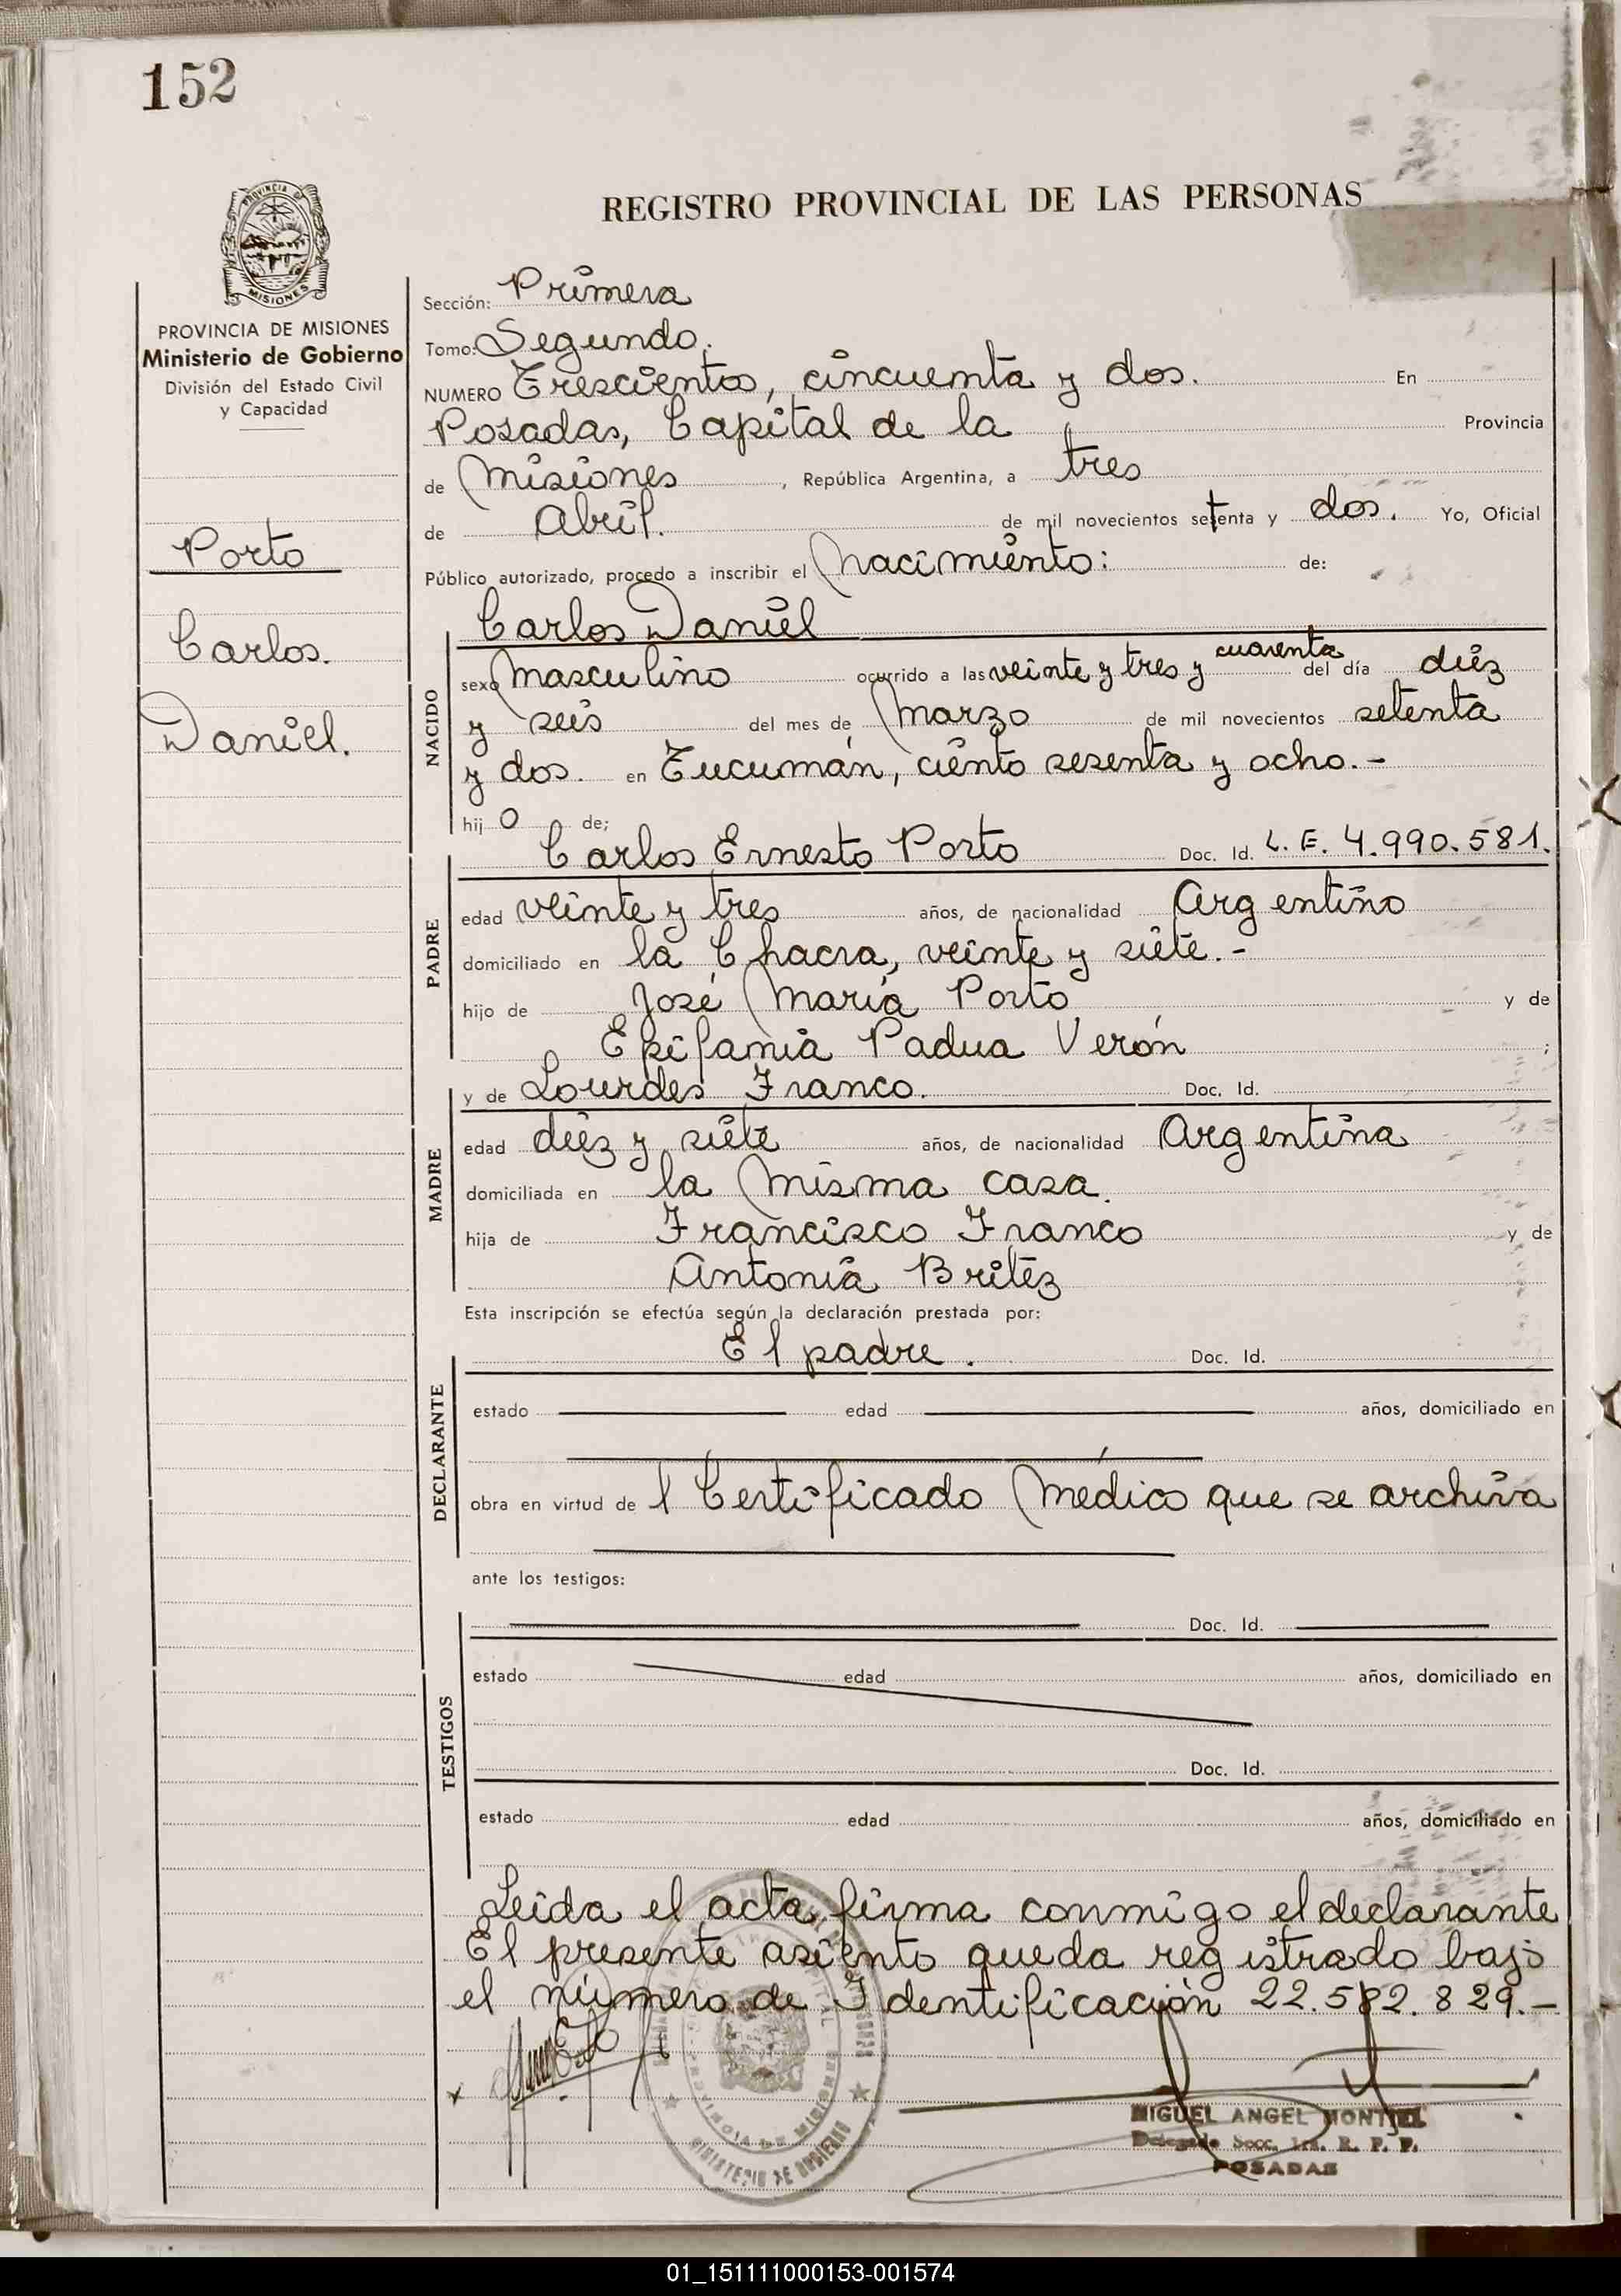 152
REGISTRO PROVINCIAL DE LAS PERSONAS
PROVINCIA DE
MISIONES
PROVINCIA DE MISIONES
Ministerio de Gobierno
División del Estado Civil
y Capacidad
Porto
Carlos.
Daniel.
Sección: Primera
Tomo: Segundo.
NUMERO Trescientos, cincuenta y dos. En
Posadas, Capital de la Provincia
de Misiones, República Argentina, a tres
de Abril. de mil novecientos setenta y dos. Yo, Oficial
Público autorizado, procedo a inscribir el Nacimiento: de:
Carlos Daniel
NACIDO
sexo Masculino ocurrido a las veinte y tres y cuarenta del día diez
y seis del mes de Marzo de mil novecientos setenta
y dos. en Tucumán, ciento sesenta y ocho.-
hij o de;
Carlos Ernesto Porto Doc. Id. L.E. 4.990.581.
PADRE
edad veinte y tres años, de nacionalidad Argentino
domiciliado en la Chacra, veinte y siete.-
hijo de José María Porto y de
Epifania Padua Verón ;
y de Lourdes Franco. Doc. Id.
MADRE
edad diez y siete años, de nacionalidad Argentina
domiciliada en la misma casa.
hija de Francisco Franco y de
Antonia Britez
Esta inscripción se efectúa según la declaración prestada por:
El padre. Doc. Id.
DECLARANTE
estado edad años, domiciliado en
obra en virtud de l Certificado Médico que se archiva
ante los testigos:
Doc. Id.
TESTIGOS
estado edad años, domiciliado en
Doc. Id.
estado edad años, domiciliado en
Leida el acta, firma conmigo el declarante
El presente asiento queda registrado bajo
el número de Identificación 22.582.829.-
PROVINCIA DE MISIONES
MINISTERIO DE GOBIERNO
MIGUEL ANGEL MONTIEL
Delegado Secc. 1ra. R. P. P.
POSADAS
01_151111000153-001574